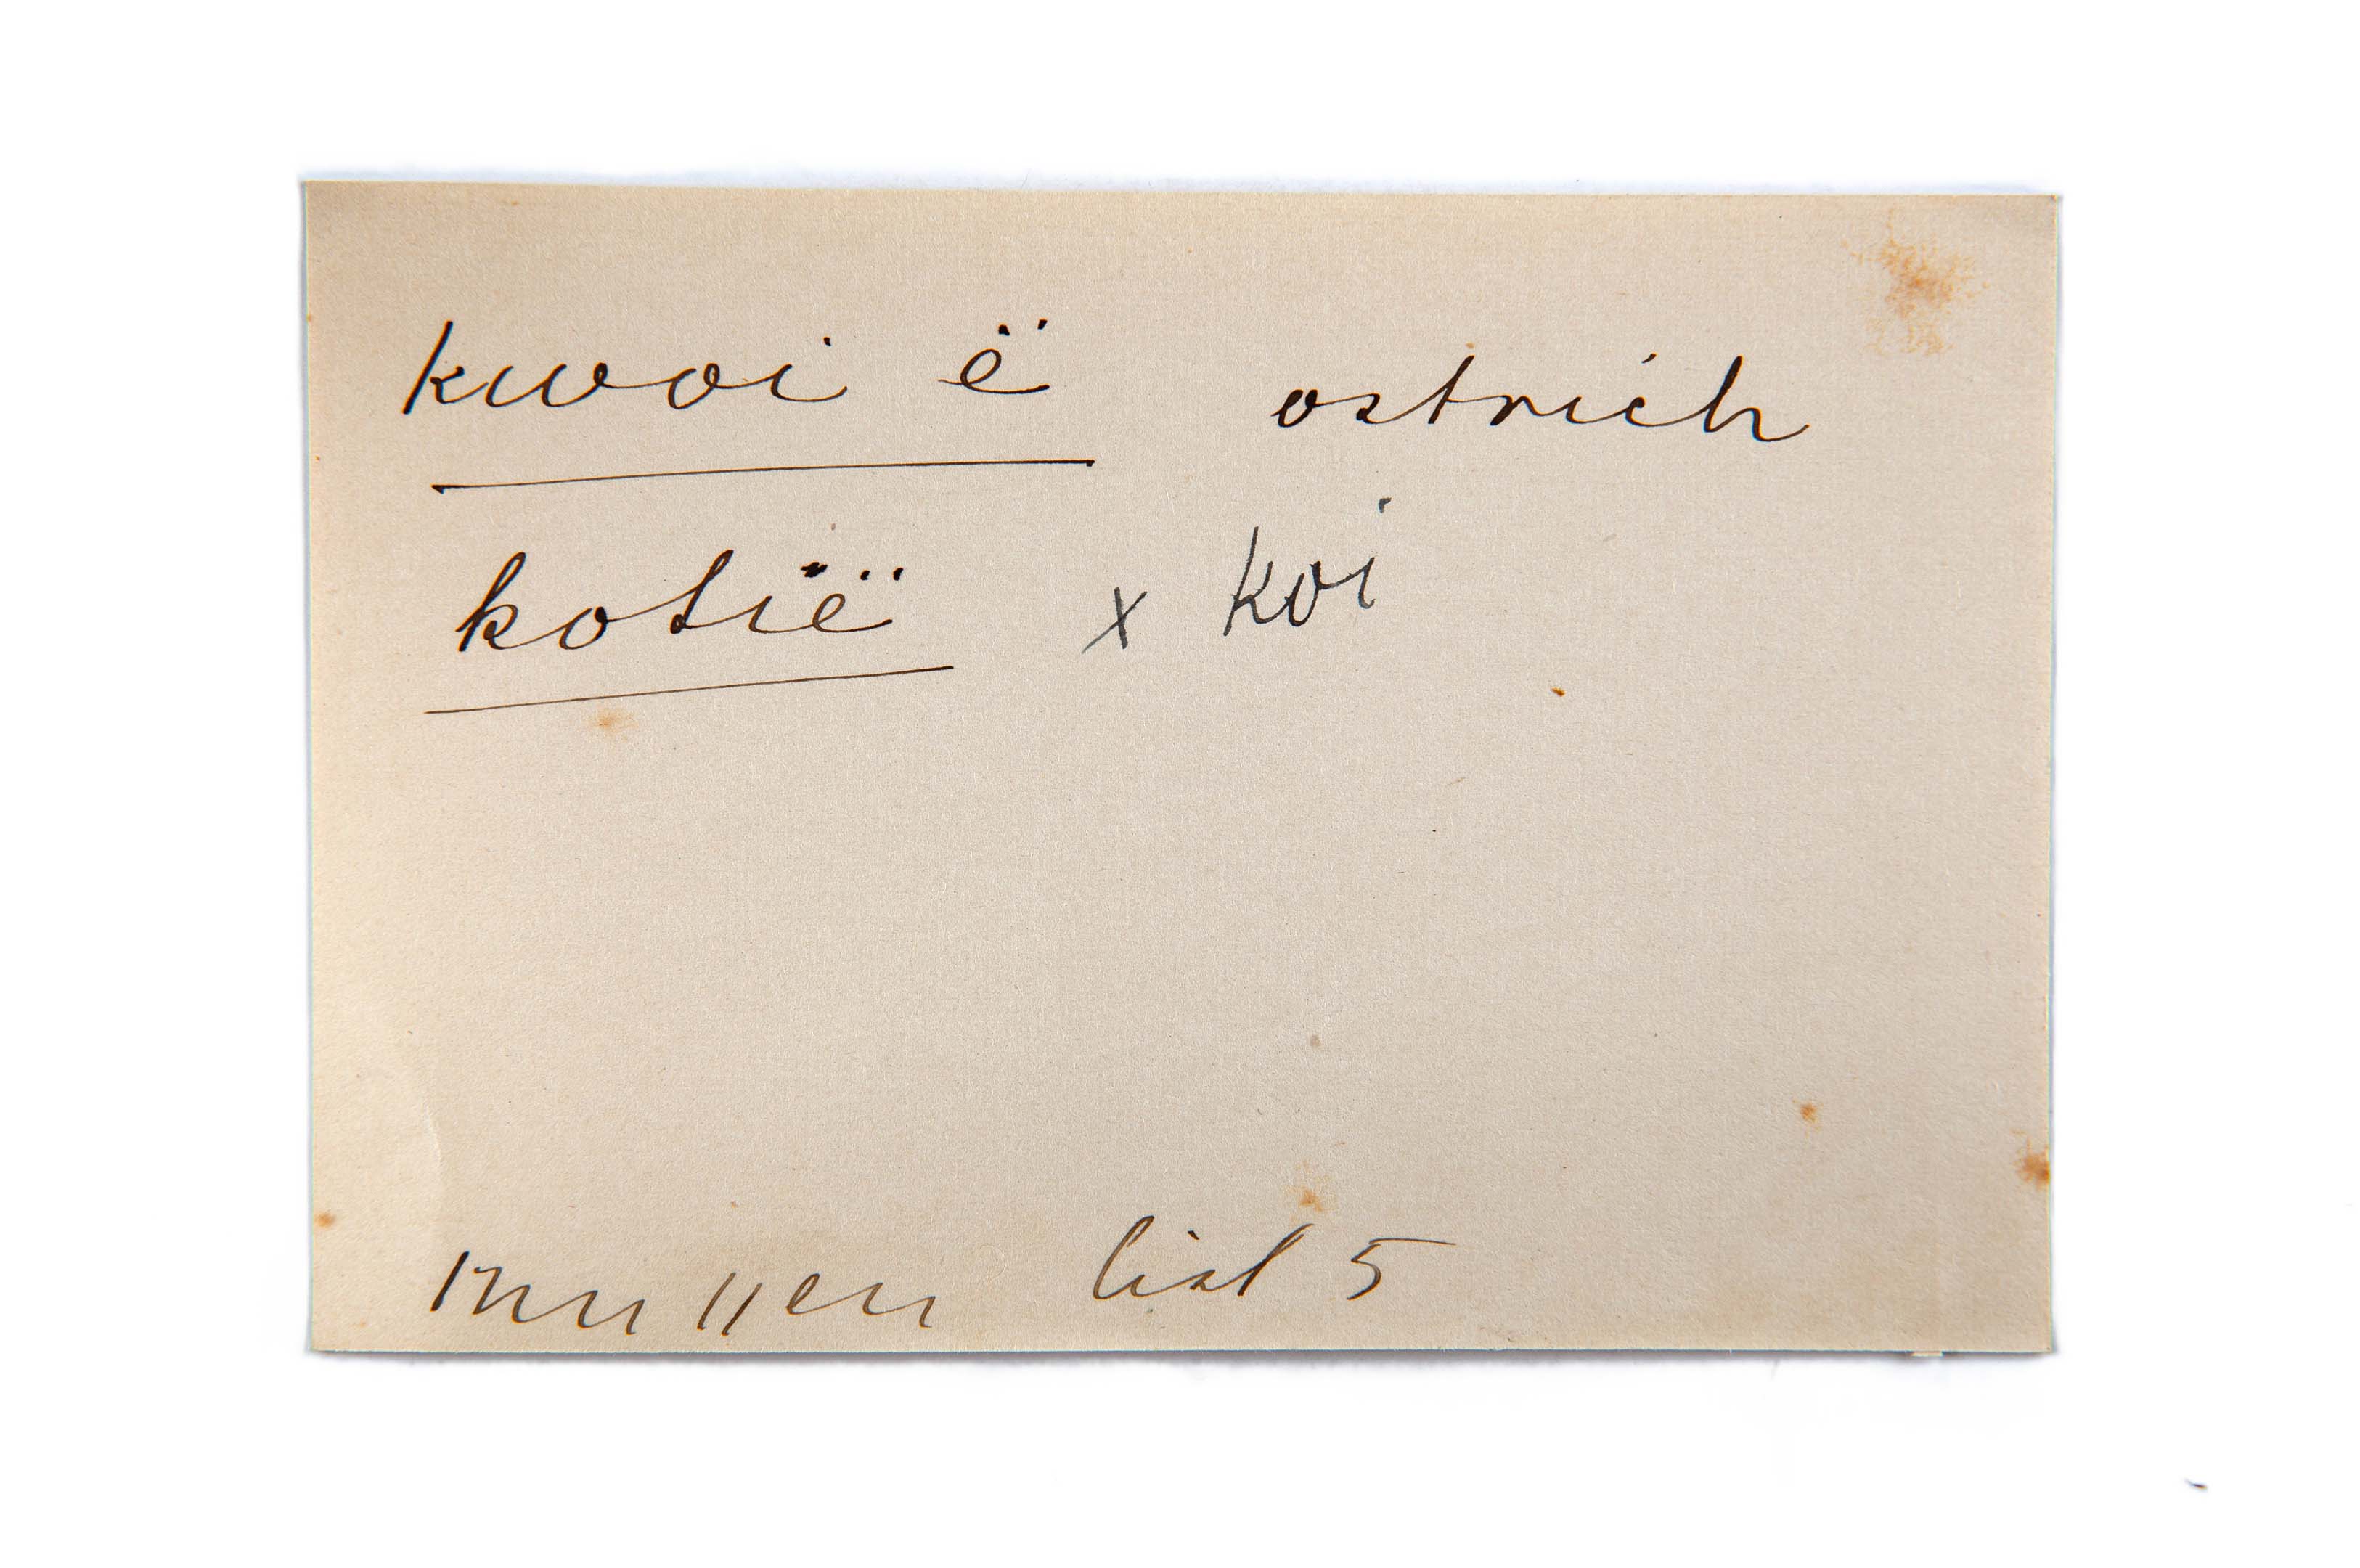 kwoi ë ostrich
kotïë x koi
Mullen list 5